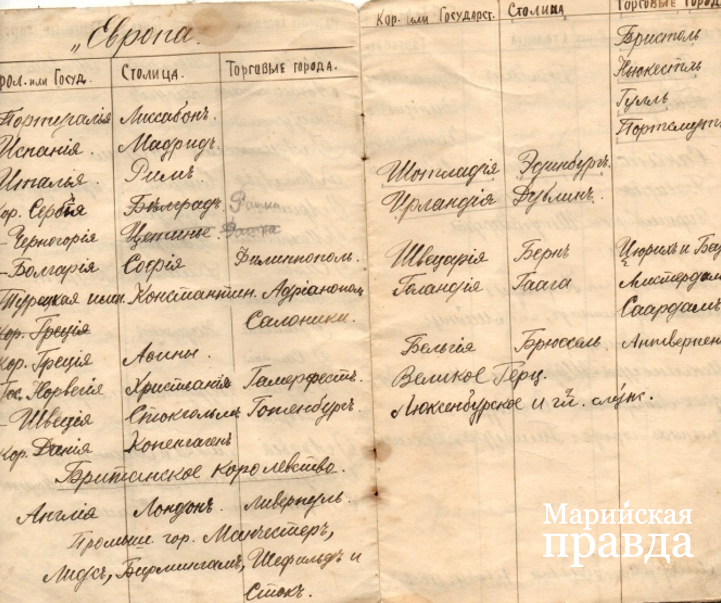 „Европа.
рол. или Госуд. Столица. Торговые города.
Португалія Лиссабонъ.
Испанія. Мадридъ.
Италья. Римъ.
Кор. Сербія Бѣлградъ Рашка
-Черногорія Цетинье.
-Болгарія София Филиппополь.
Турецкая импи. Константин. Адріанополь
Кор. Греція Салоники.
Кор. Греція Аѳины.
Норвегія Христіанія Гамерфестъ.
-Швеція Стокгольмъ Готенбургъ.
Кор. Данія Копенгагенъ
Британское королевство.
Англіа Лондонъ. Ливерпуль.
Промыш гор. Манчестеръ,
Лидсъ, Бирмингамъ, Шефильдъ и
Стокъ.
Кор. или Государст. Столица Торговые город
Бристоль
Ньюкестль
Гулль
Портсмут
Шотладія Эдинбургъ.
Ирландія Дублинъ.
Швецарія Бернъ Цюрихъ и Ба
Голандія Гаага Амстердам
Саардамъ
Бельгія Брюссель Антверпен
Великое Герц.
Люксенбурское и гл.
Марийская
правда